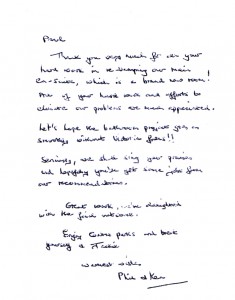 Paul
Thank you very much for all your
hard work in re-designing our main
En-Suite, which is a brand new room!
All of your hard work and efforts to
our problems are much appreciated.
Let's hope the bathroom project goes as
smoothly without Victoria !!
Seriously, we shall sing your praises
and hopefully you'll get some jobs from
our recommendations.
Great work, we're delighted
with the finished
Enjoy and look
yourself &
Warmest wishes
Phil &